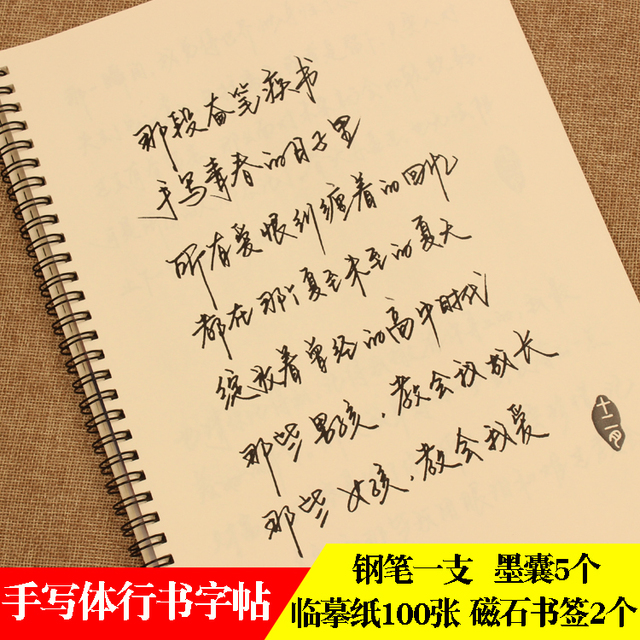 那段奋笔疾书
手写青春的日子里
所有爱恨纠缠着的回忆
都在那个夏至未至的夏天
绽放着曾经的高中时代
那些男孩,教会我成长
那些女孩,教会我爱
十二
手写体行书字帖
钢笔一支 墨囊5个
临摹纸100张 磁石书签2个